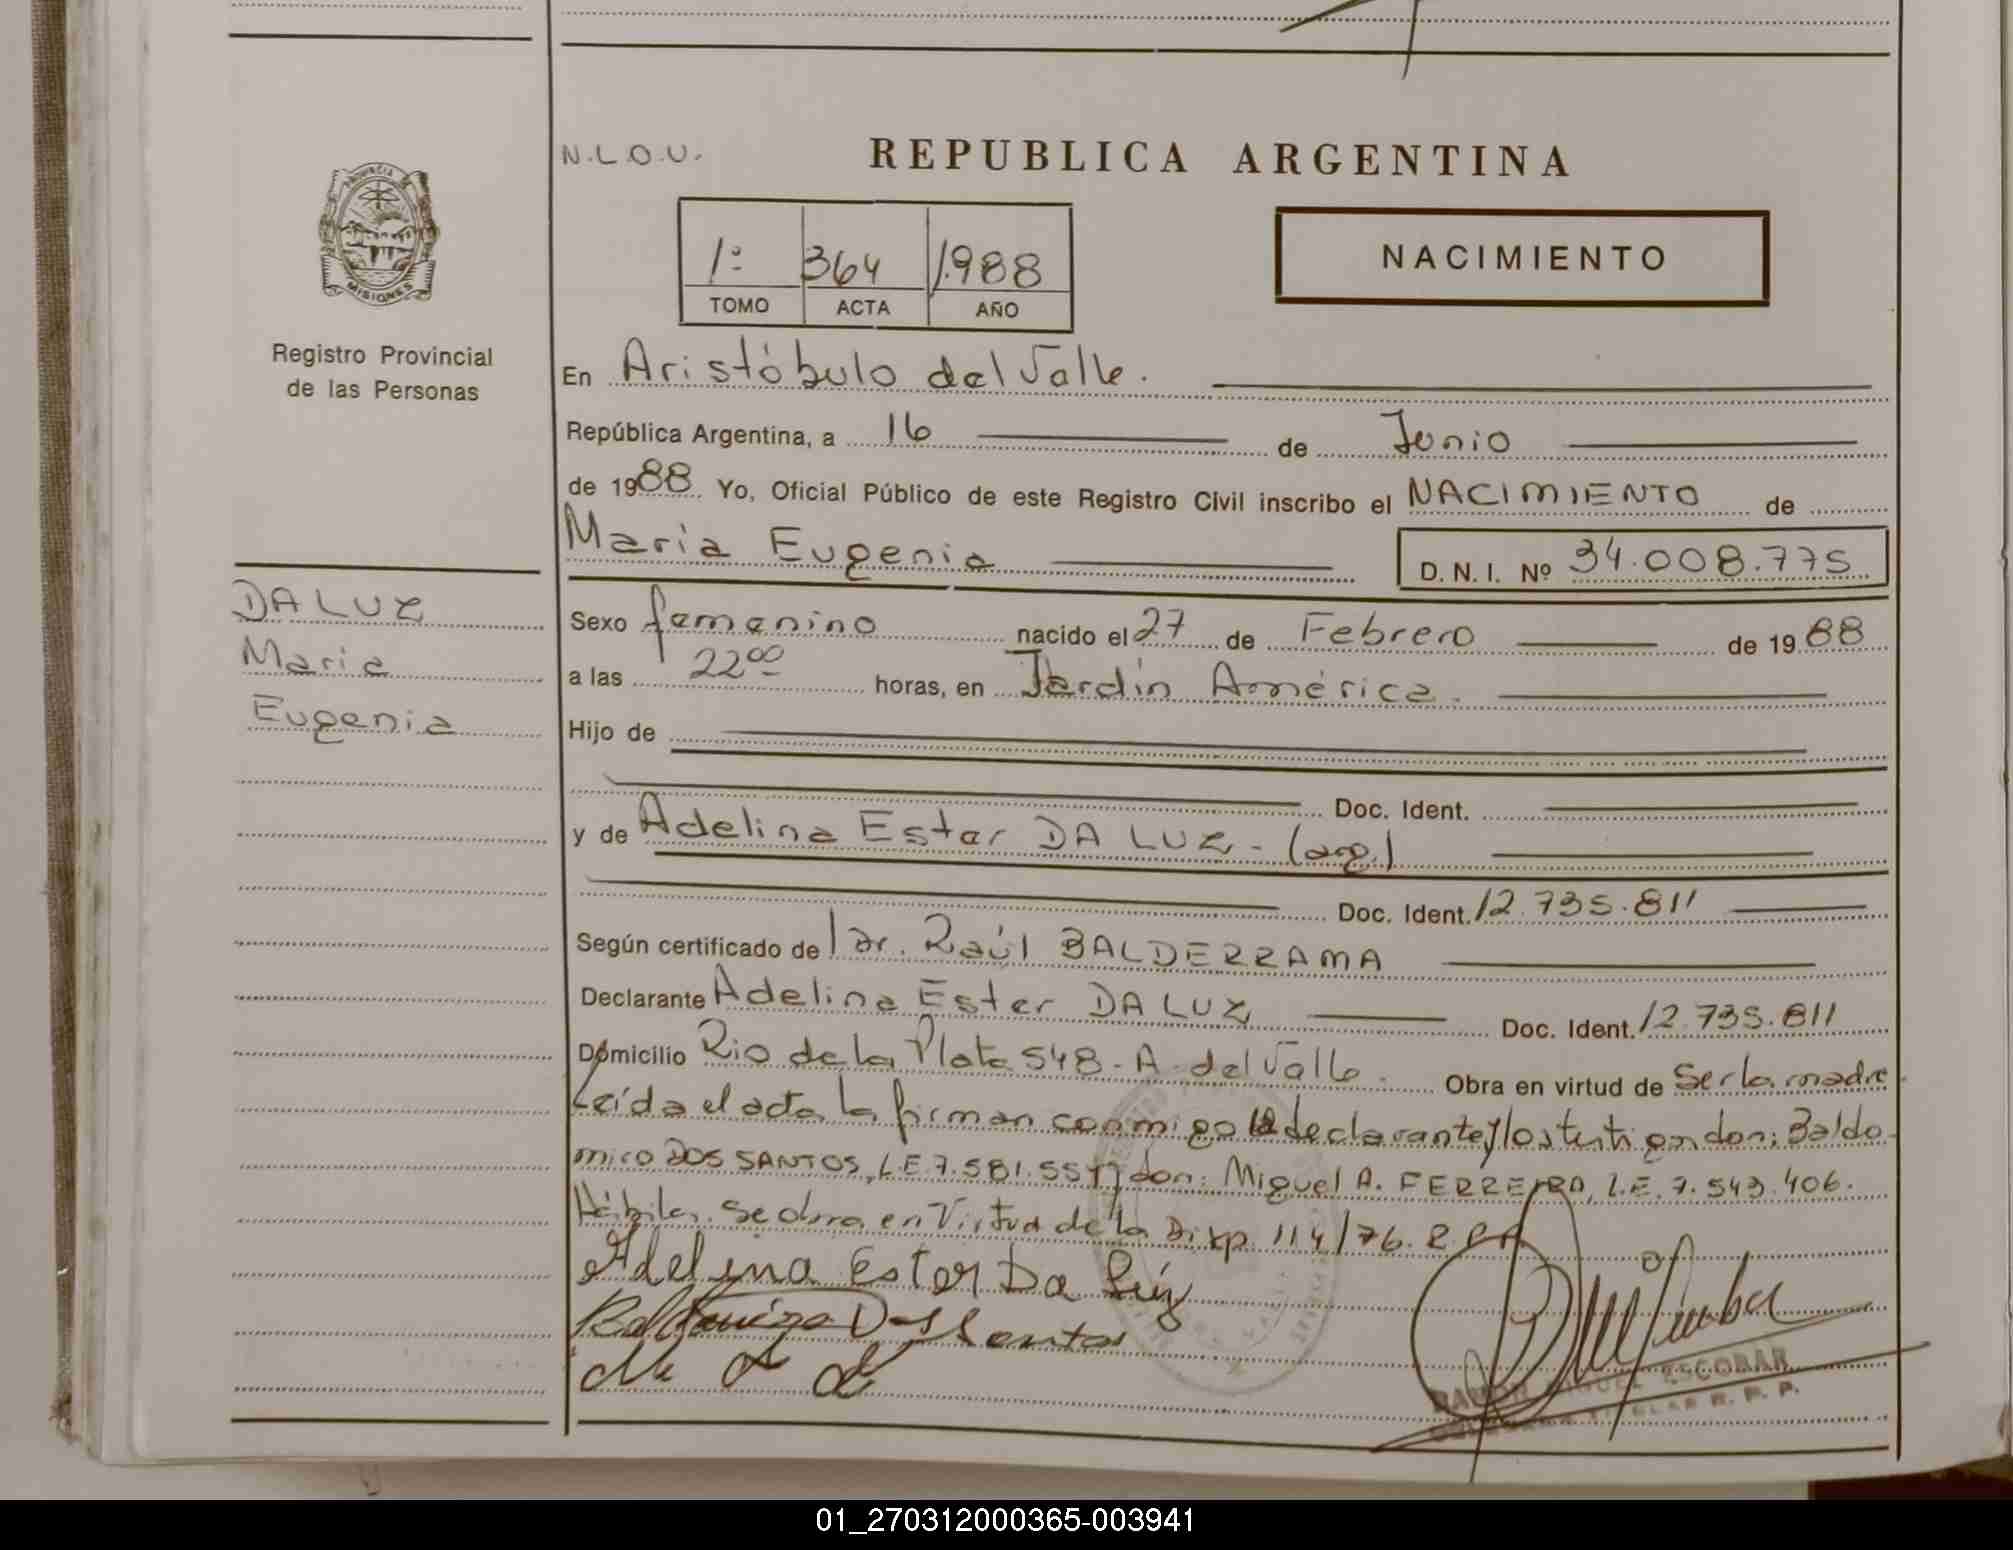 N.L.O.U.
REPUBLICA ARGENTINA
1º 364 1.988
TOMO ACTA AÑO
NACIMIENTO
PROVINCIA DE
MISIONES
Registro Provincial
de las Personas
En Aristóbulo del Valle.
República Argentina, a 16 de Junio
de 1988 Yo, Oficial Público de este Registro Civil inscribo el NACIMIENTO de
Maria Eugenia D.N.I. Nº 34.008.775
DA LUZ
Maria
Eugenia
Sexo femenino nacido el 27 de Febrero de 1988
a las 22ºº horas, en Jardín América.
Hijo de
Doc. Ident.
y de Adelina Ester DA LUZ - (arg.)
Doc. Ident. 12.735.811
Según certificado de Dr. Raúl BALDERRAMA
Declarante Adelina Ester DA LUZ Doc. Ident. 12.735.811
Domicilio Rio de la Plata 548 - A. del Valle. Obra en virtud de Ser la madre.
Leída el acta, la firman conmigo la declarante y los testigos don: Baldo-
miro DOS SANTOS, L.E. 7.581.551 y don: Miguel A. FERREIRA, L.E. 7.543.406.
Hábiles. Se obra en Virtud de la Disp. 114/76. R.P.P.
Adelina Ester Da Lúz
Baldomiro Dos Santos
RAMON MIGUEL ESCOBAR
TITULAR R. P. P.
01_270312000365-003941